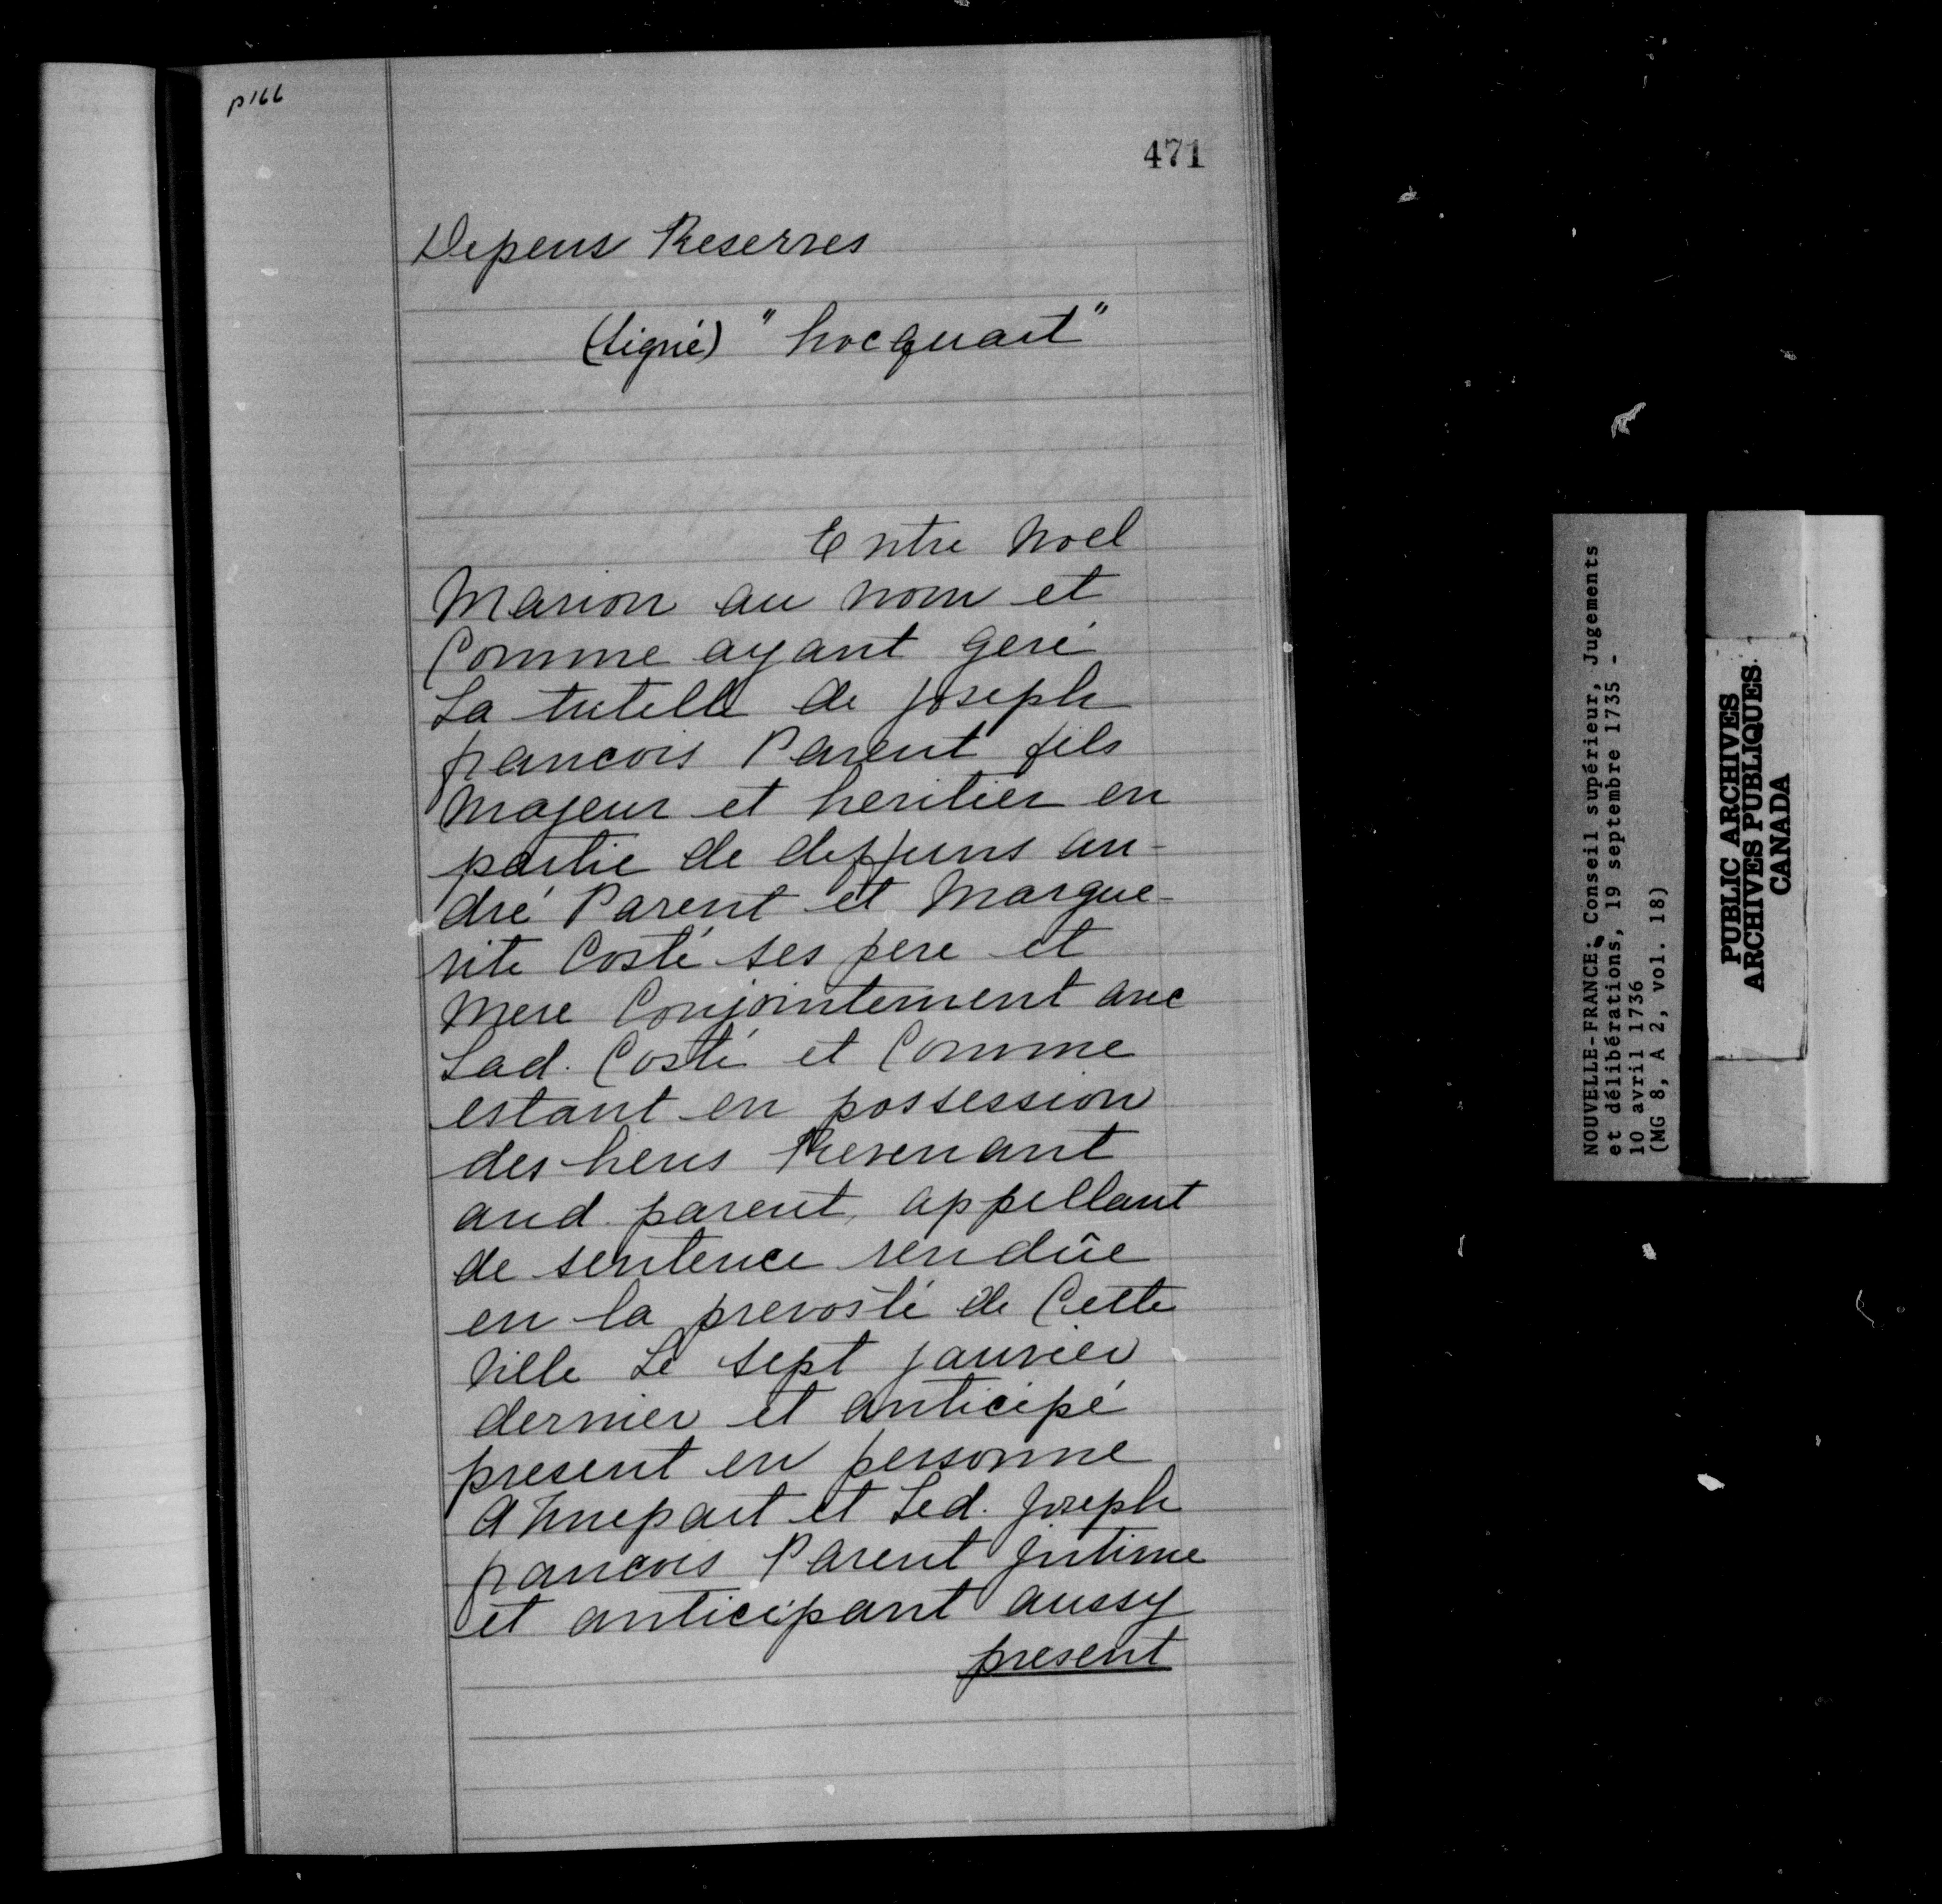 p166
471
Depens Reserves
(signé) "hocquart"
Entre Noel
Marion au nom et
Comme ayant geré
La tutelle de Joseph
francois Parent fils
Majeur et heritier en
partie de deffuns an-
dré Parent et Margue-
rite Costé ses pere et
Mere Conjointement avec
Lad. Costé et Comme
estant en possession
des biens Revenant
aud. parent, appellant
de sentence rendüe
en la prevosté de Cette
Ville Le sept janvier
dernier et anticipé
present en personne
d'Unepart et Led. Joseph
francois Parent Jntime
et anticipant aussy
present
NOUVELLE-FRANCE: Conseil supérieur, Jugements
et délibérations, 19 septembre 1735 -
10 avril 1736
(MG 8, A 2, vol. 18)
PUBLIC ARCHIVES
ARCHIVES PUBLIQUES
CANADA